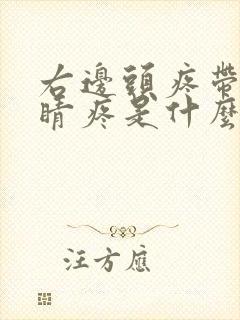 右邊頭疼帶
睛疼是什麼
汪方應